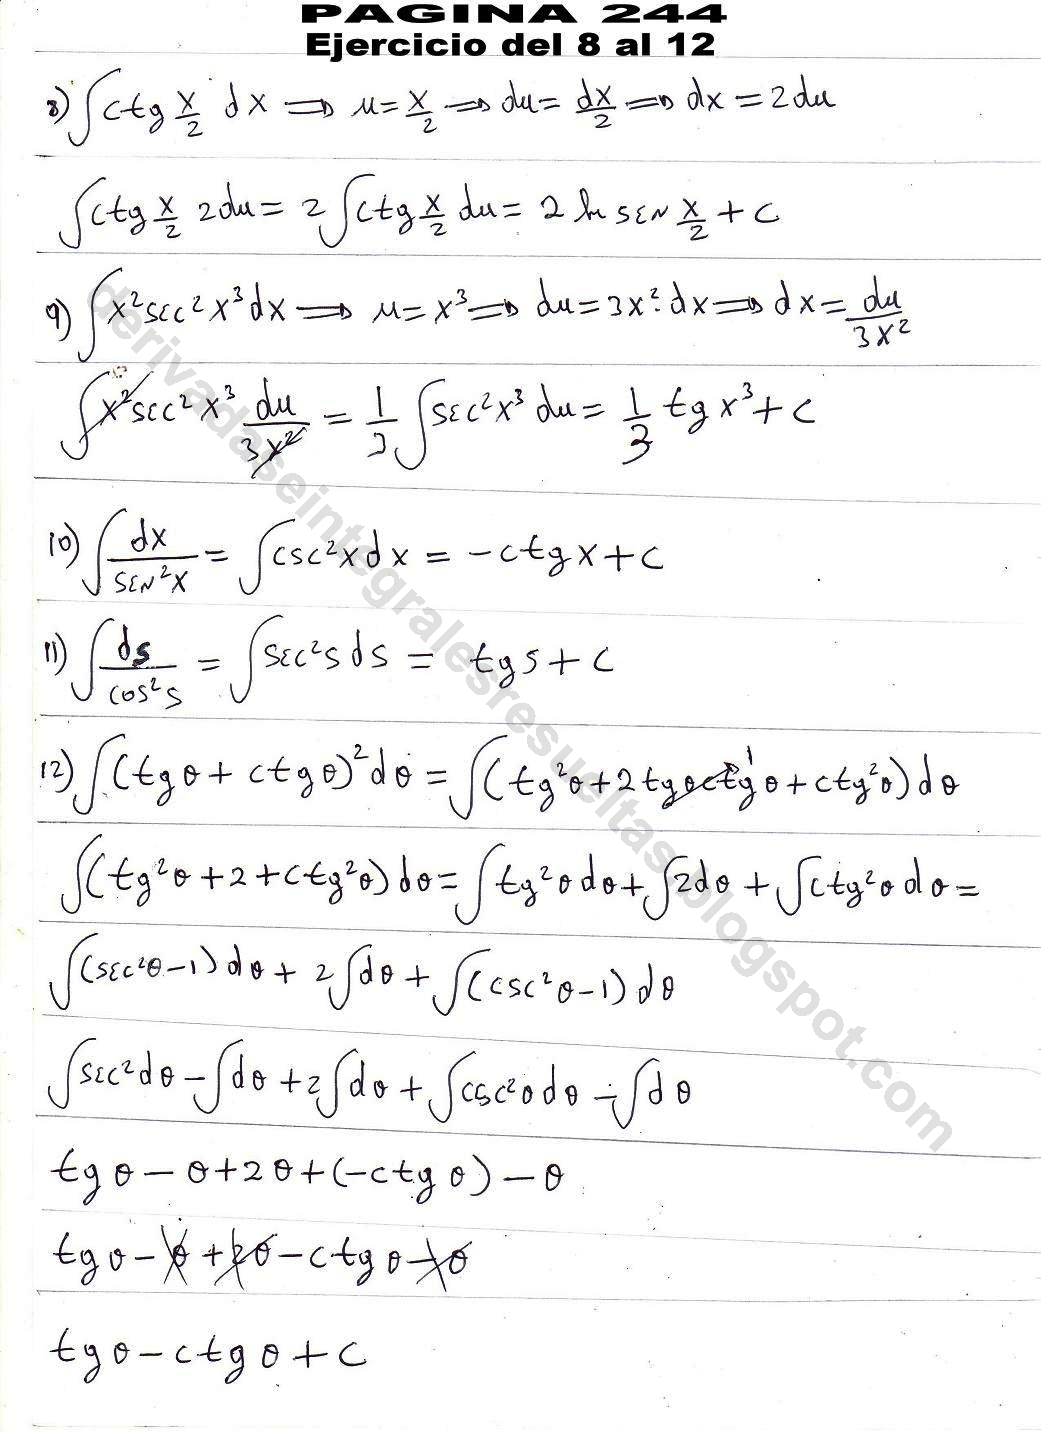 PAGINA 244
Ejercicio del 8 al 12
8) ∫ctg x/2 dx ⟹ u = x/2 ⟹ du = dx/2 ⟹ dx = 2du
∫ctg x/2 2du = 2∫ctg x/2 du = 2 ln sen x/2 + c
9) ∫x² sec² x³ dx ⟹ u = x³ ⟹ du = 3x²·dx ⟹ dx = du/3x²
∫x² sec² x³ du/3x² = 1/3 ∫sec² x³ du = 1/3 tg x³ + c
10) ∫dx/sen²x = ∫csc²x dx = -ctg x + c
11) ∫ds/cos²s = ∫sec²s ds = tg s + c
12) ∫(tg θ + ctg θ)² dθ = ∫(tg²θ + 2 tg θ ctg θ 1 + ctg²θ) dθ
∫(tg²θ + 2 + ctg²θ) dθ = ∫tg²θ dθ + ∫2dθ + ∫ctg²θ dθ =
∫(sec²θ - 1) dθ + 2∫dθ + ∫(csc²θ - 1) dθ
∫sec² dθ - ∫dθ + 2∫dθ + ∫csc²θ dθ - ∫dθ
tg θ - θ + 2θ + (-ctg θ) - θ
tg θ - θ + 2θ - ctg θ - θ
tg θ - ctg θ + c
derivadaseintegralesresueltas.blogspot.com